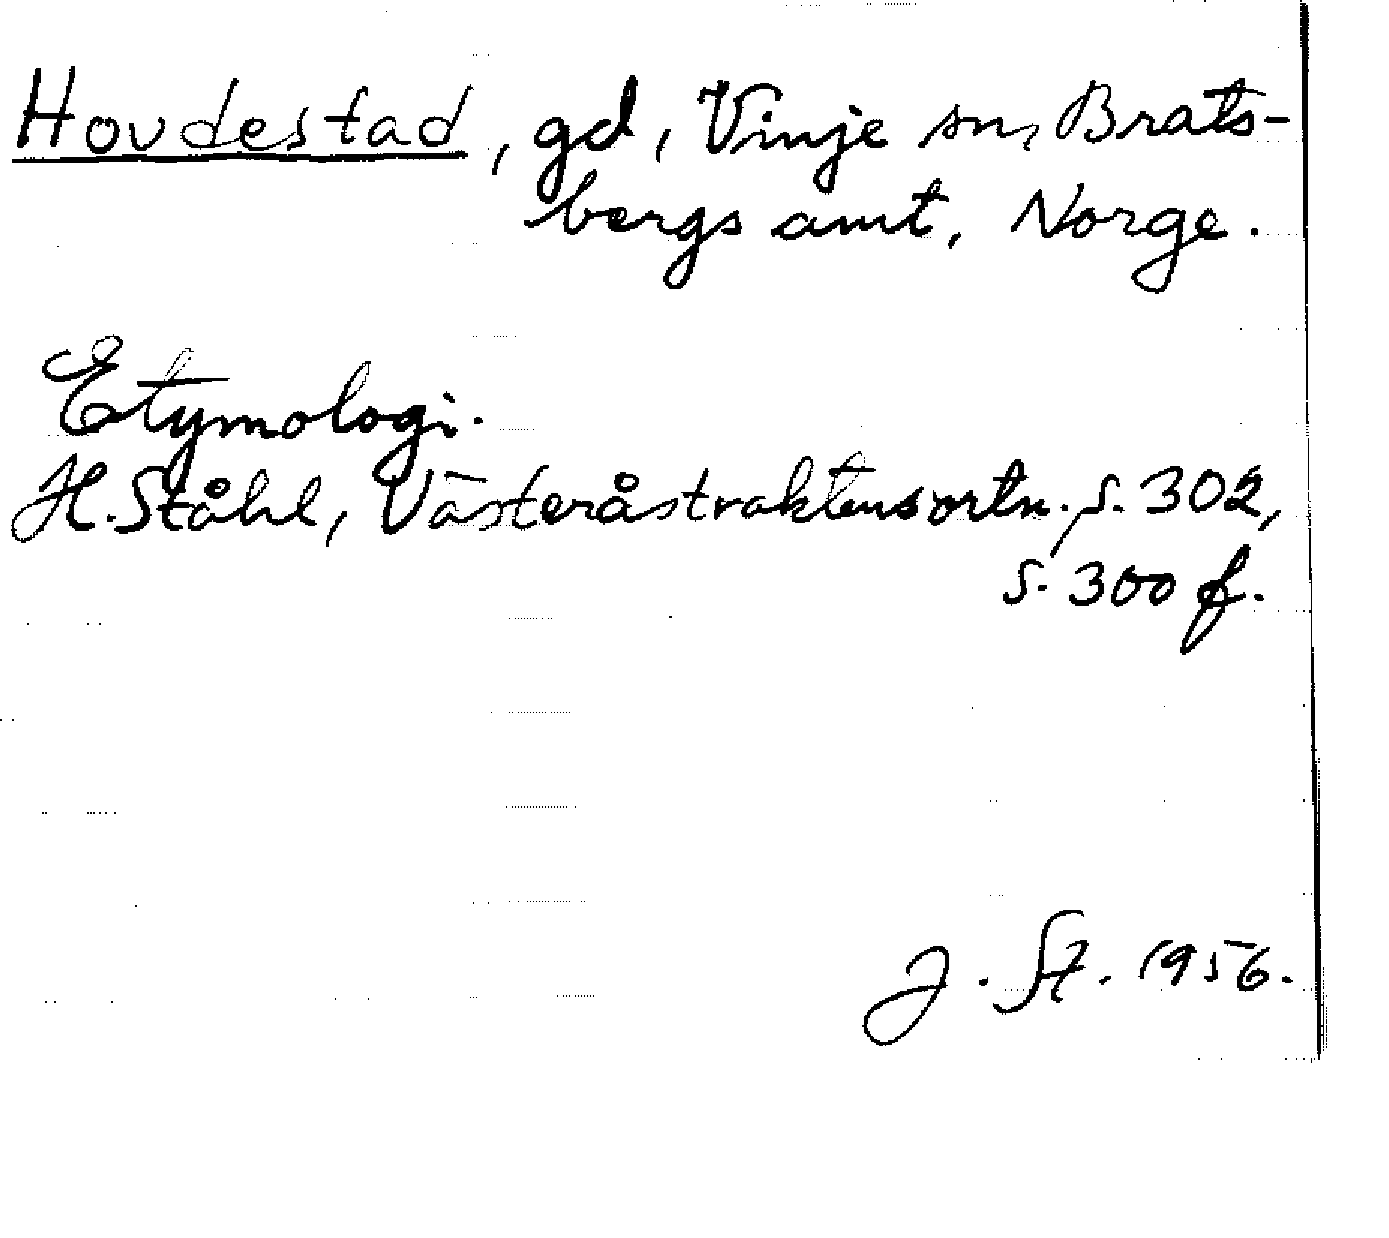 Hovdestad, gd, Vinje sn, Brats-
bergs amt, Norge.
Etymologi.
H. Ståhl, Västeråstraktens ortn. s. 302,
s. 300 f.
J. St. 1956.